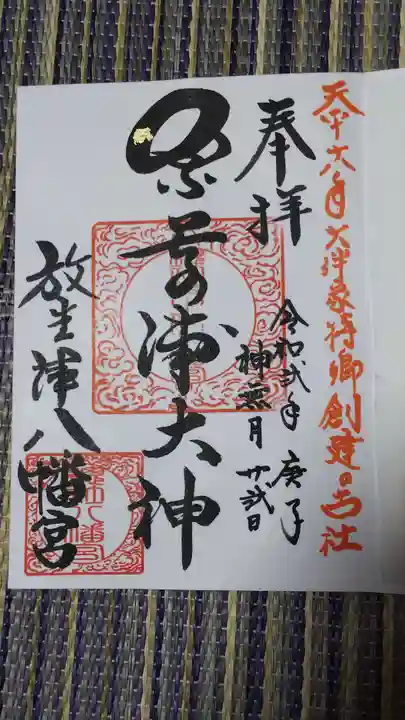 天平十八年大伴家持卿創建の古社
奉拝
令和弐年 庚子
神無月 廿弐日
奈呉の浦大神
放生津八幡宮